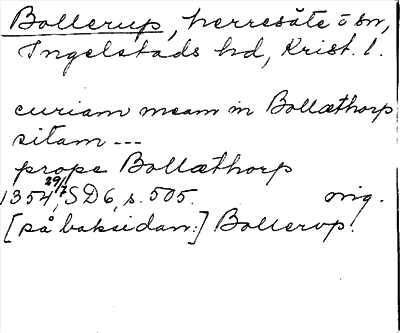 Bollerup, herresäte o sn,
Ingelstads hd, Krist. l.
curiam meam in Bollæthorp
sitam ---
prope Bollæthorp
1354 29/7, SD6, s. 505. orig.
[på baksidan:] Bollerop.